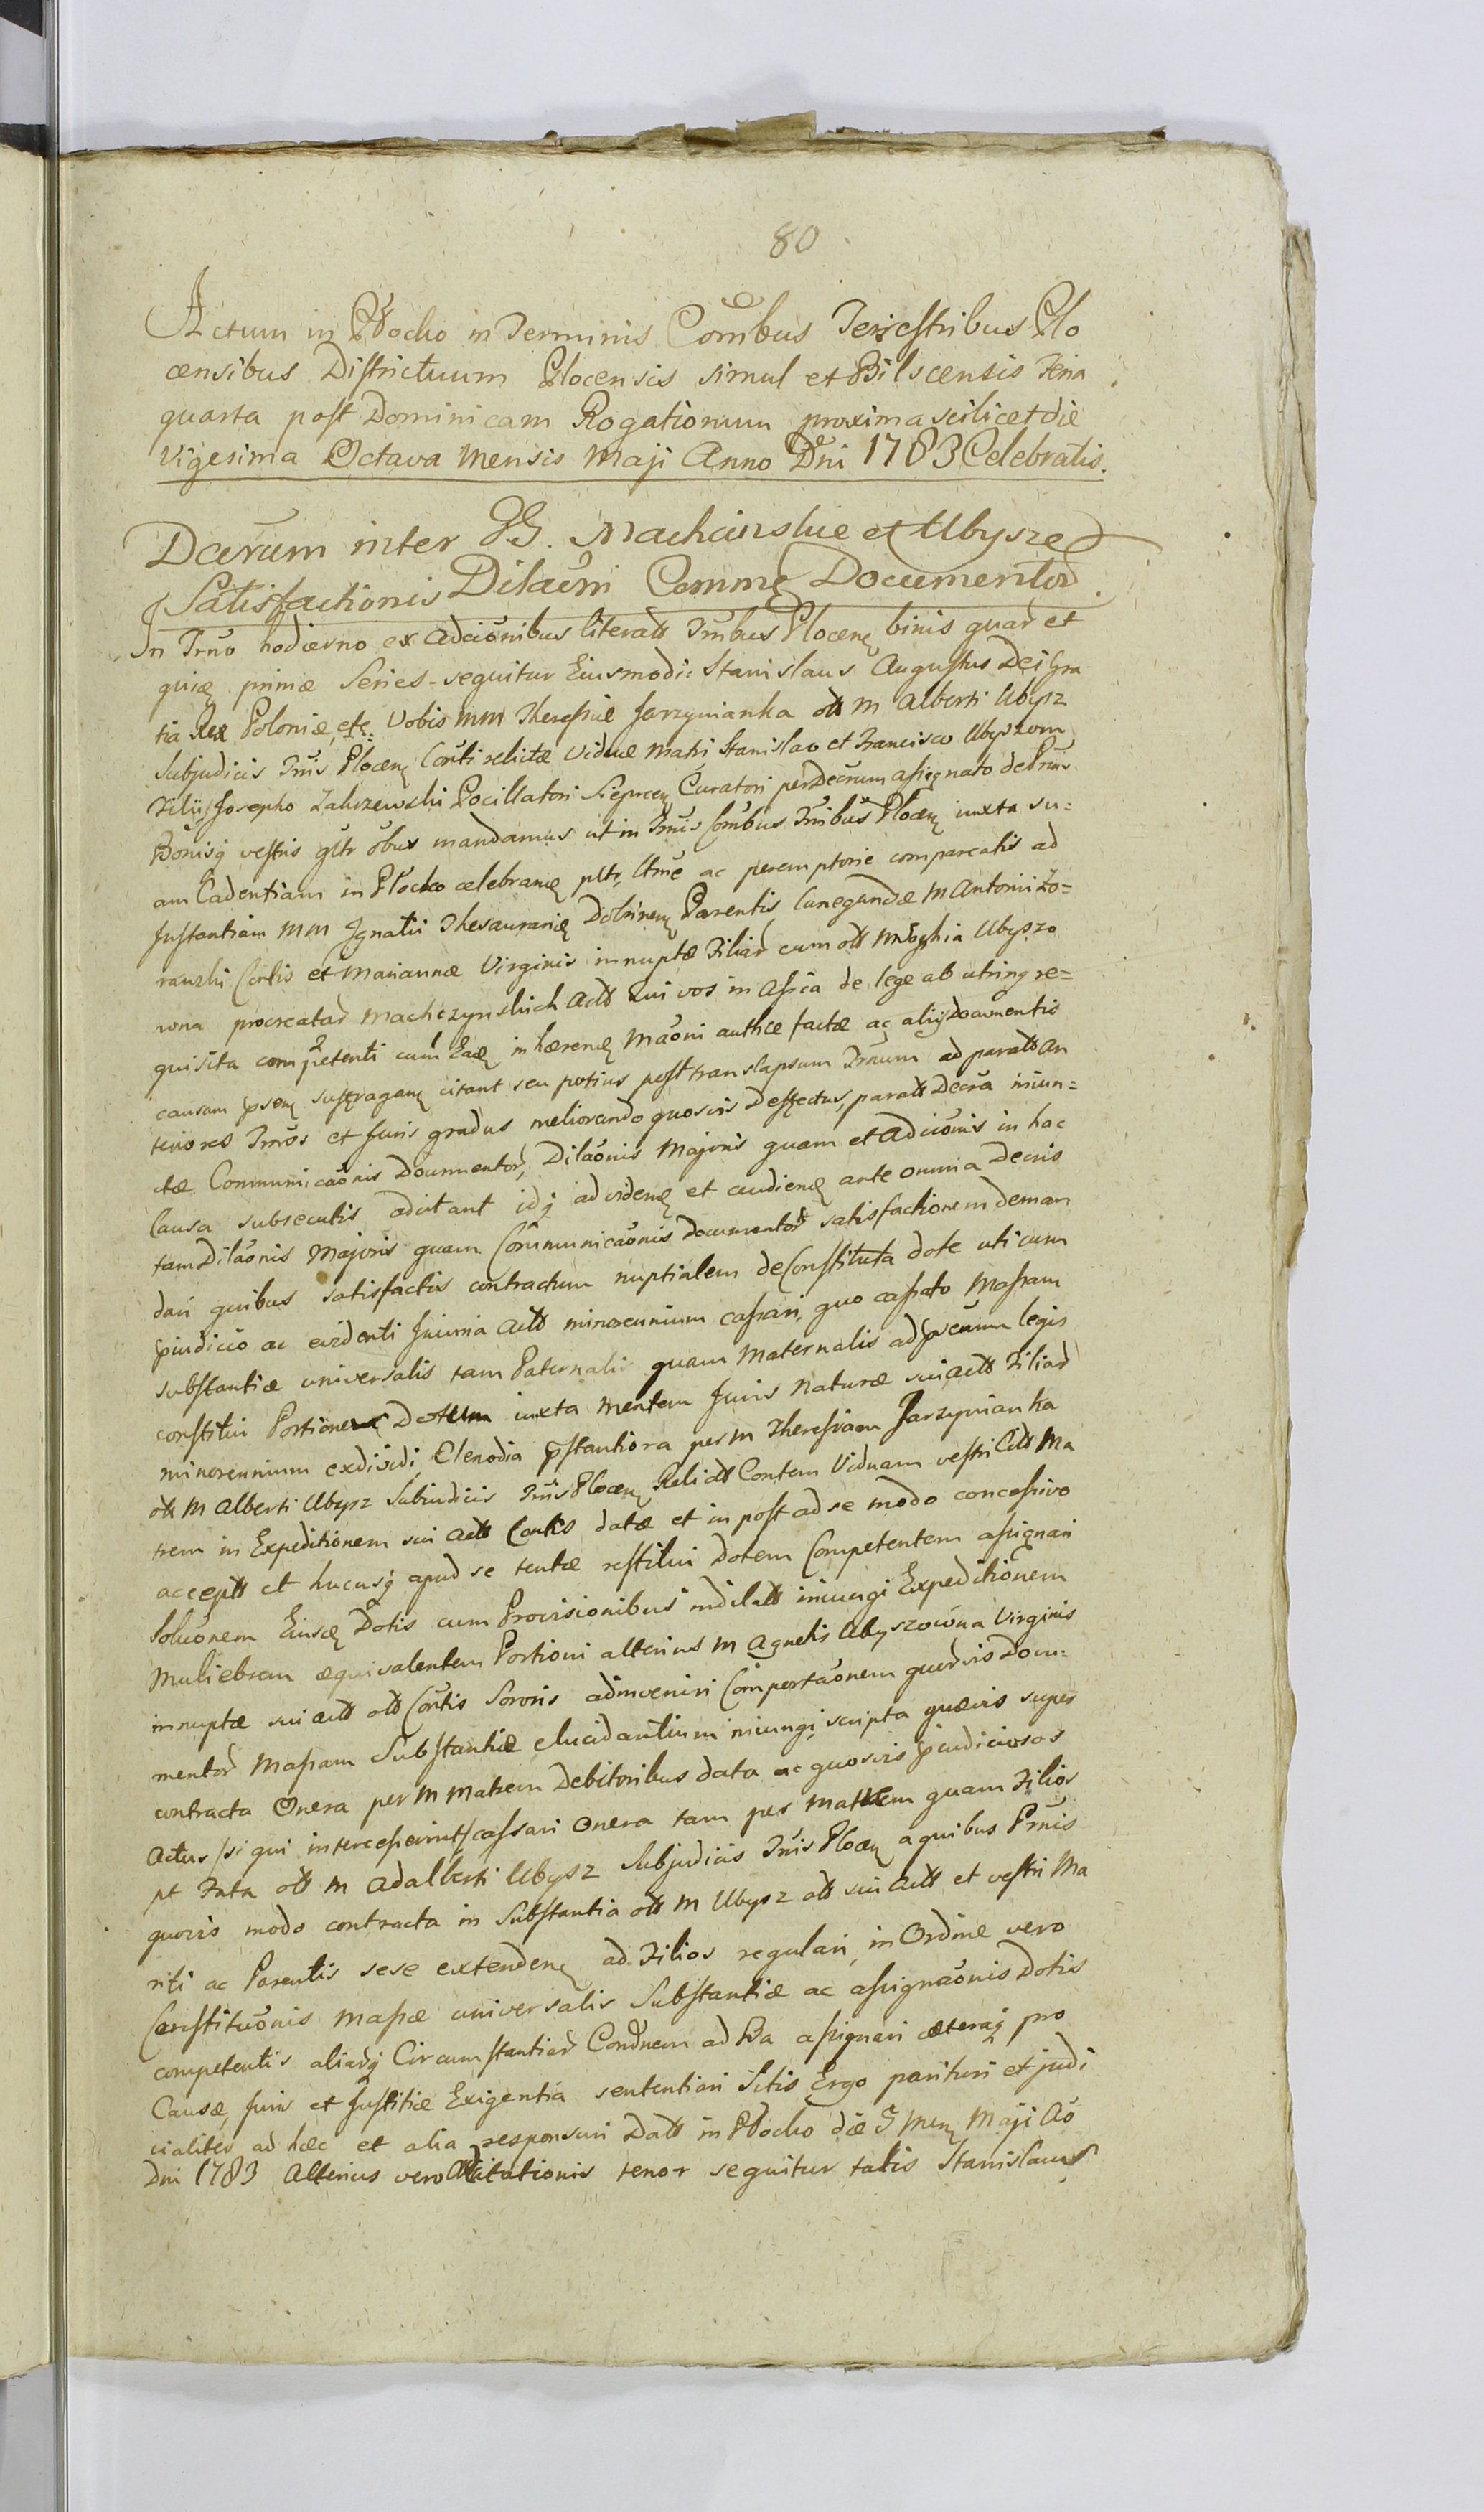 80
Actum in Płocko in Terminis Coñibus Terrestribus Plo
censibus Districtuum Plocensis simul et Bilscensis Feria
quarta post Dominicam Rogationum proxima scilicet die
Vigesima Octava Mensis Maji Anno Dñi 1783 Celebratis.
Decrũm inter GG. Machcinskie et Ubysze
Satisfactionis Dilaõni Commę Documentoꝝ
In Trno hodierno ex Adciõnibus literatt Trñibus Plocenę binis quaꝝ et
quidę primæ Series sequitur Eiusmodi: Stanislaus Augustus Dei Gra
tia Rex Poloniæ, etc: Vobis MM Theressiæ Jarzynianka ott M Alberti Ubysz
Subjudicis Trñis Plocenę Cõrti relictæ Viduæ Matri Stanislao et Francisco Ubyszom
Filiis Josepho Zakrzewski Pocillatori Sieprcenę Curatori per Decrum assignato de Prñis
Bonisq̃ vestris gltr õbus mandamus ut in Trñis Coñibus Trñibus Plocenę iuxta su=
am Cadentiam in Płocko celebranę pltr, ltme ac peremptorie compareatis ad
Instantiam MM Ignatii Thesaurarię Dobrinenę Parentis, Cunegundæ M Antonii Zo=
rawski Cõrtis et Mariannæ Virginis innuptæ Filiaꝝ cum ott M Sophia Ubyszo
wna procreataꝝ Machczynskich Actt Qui vos in Assia de lege ab utrinq̃ re=
quisita competenti cum Eadę inhærenę Maõni authcæ factæ ac aliis Documentis
causam p̃senę suffraganę citant seu potius post translapsum Trnum ad paratt An
teriores Trños et Juris gradus meliorando quosvis Deffectus, paratt Decra iniun=
ctæ Communicaõnis Documentoꝝ, Dilaõnis Majoris quam et Adciõnis in hac
Causa subsecutis adcitant idq̃ ad videnę et audienę ante omnia Decris
tam Dilaõnis Majoris quam Communicaõnis Documentoꝝ satisfactionem deman
dari quibus satisfactis contractum nuptialem de Constituta dote uti cum
p̃iudicio ac evidenti Iniuria actt minorennium cassari, quo cassato Massam
substantiæ universalis tam Paternalis quam Maternalis ad p̃scũm legis
constitui Portionem Dotum iuxta mentem Juris Naturæ sui actt Filiaꝝ
minorennium exdividi Clenodia p̃stantiora per M Theressiam Jarzynianka
ott M Alberti Ubysz Subiudicis Trñis Plocenę Relictt Contem Viduam vestri Citt Ma
trem in Expeditionem sui actt Cõrtis datæ et in post ad se modo concessivo
acceptt et hucusq̃ apud se tentæ restitui Dotem Competentem assignari
Soluõnem Eiusdę Dotis cum Provisionibus indilatt iniungi Expeditionem
Muliebrem æquivalentem Portioni alterius M Agnetis Ubyszowna Virginis
innuptæ sui actt ott Cõrtis Sororis adinveniri Comportaõnem quorvis Docu=
mentoꝝ Massam Substantiæ elucidantium iniungi, scripta quævis super
contracta Onera per M Matrem Debitoribus data ac quosvis p̃iudiciosos
Actus /si qui intercesserint/ cassari Onera tam per Matrem quam Filios
pt Fata ott M Adalberti Ubysz Subjudicis Trñis Plocenę a quibus Prñis
quovis modo contracta in Substantia ott M Ubysz ott sui Actt et vestri Ma
riti ac Parentis sese extendenę ad Filios regulari in Ordine vero
Constituõnis Massæ universalis Substantiæ ac assignaõnis Dotis
competentis aliaꝝq̃ Circumstantiaꝝ Condnem ad Ba assignari cæteraq̃ pro
Causæ, Juris et Justitiæ Exigentia sententiari Sitis Ergo parituri et judi
cialiter ad hæc et alia responsuri Datt in Płocko die 5 Menę Maji Ao
Dni 1783 Alterius vero Adcitationis tenor sequitur talis Stanislaus